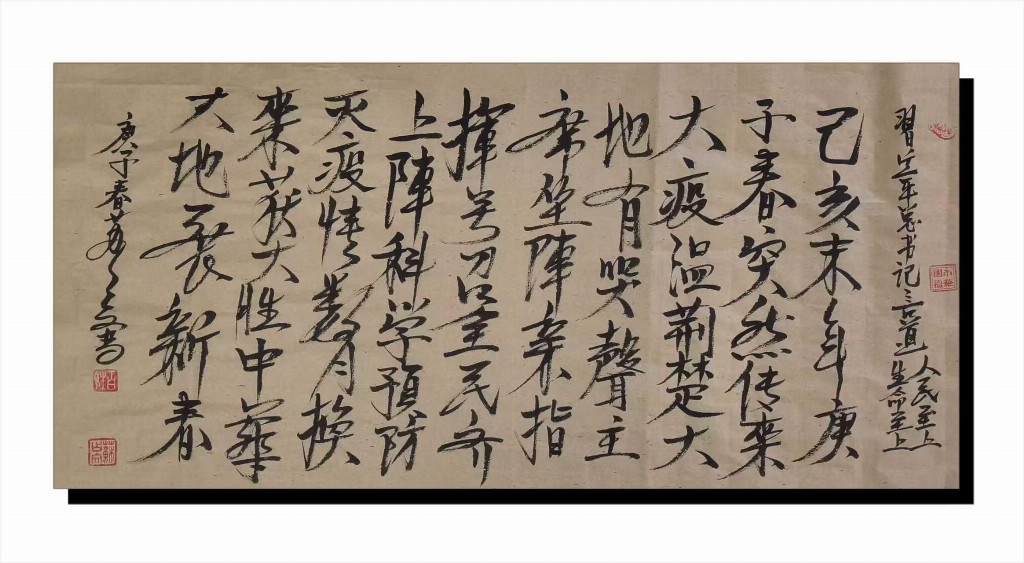 習近平总书记言道 人民至上
生命至上
己亥末年庚
子春突然传来
大疫温荆楚大
地有哭聲主
席坐陣亲指
揮号召全民齐
上陣科学預防
灭疫情数月换
来获大胜中華
大地展新春
庚子春